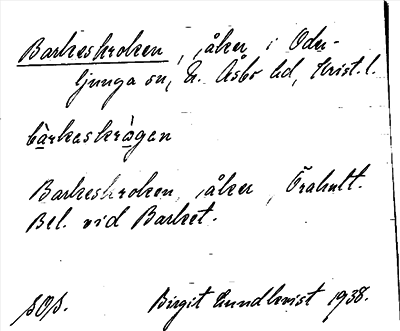 Barkeskroken, åker i Odu-
ljunga sn, N. Åsbo hd, Krist. l.
bàrkaskrågan
Barkeskroken, åker, Örahult.
Bel. vid Barket.
Birgit Lundkvist 1938.